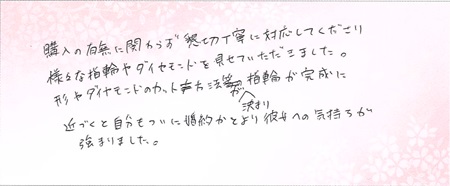 購入の有無に関わらず懇切丁寧に対応してくださり
様々な指輪やダイヤモンドを見せていただきました。
形やダイヤモンドのカット方法等が決まり指輪が完成に
近づくと自分もついに婚約かとより彼女への気持ちが
強まりました。